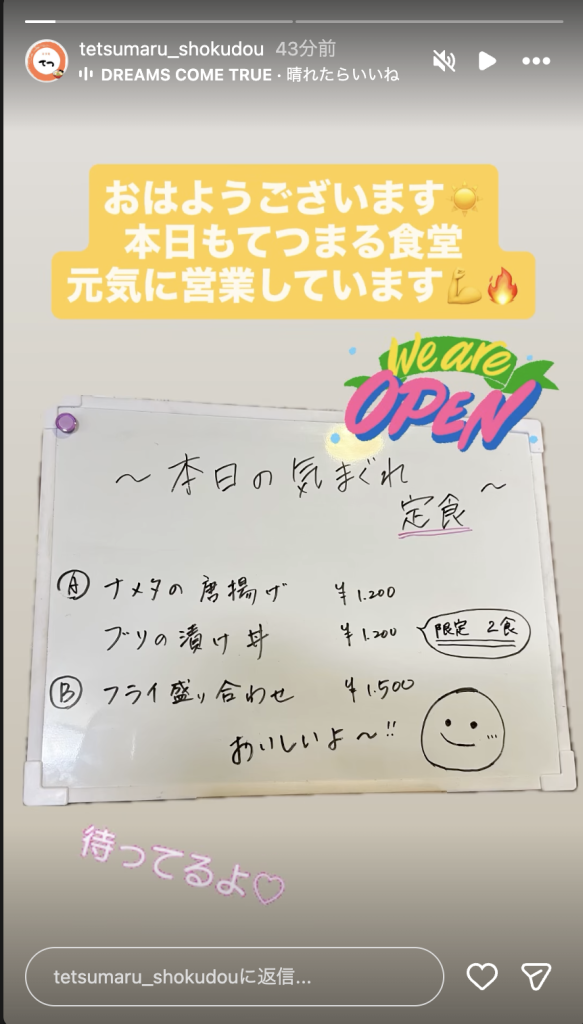 てつ
tetsumaru_shokudou 43分前
DREAMS COME TRUE · 晴れたらいいね
おはようございます☀️
本日もてつまる食堂
元気に営業しています💪🔥
We are
OPEN
〜本日の気まぐれ
定食〜
Ⓐ ナメタの唐揚げ ¥1.200
ブリの漬け丼 ¥1.200 限定 2食
Ⓑ フライ盛り合わせ ¥1.500
おいしいよ〜!!
待ってるよ♡
tetsumaru_shokudouに返信...